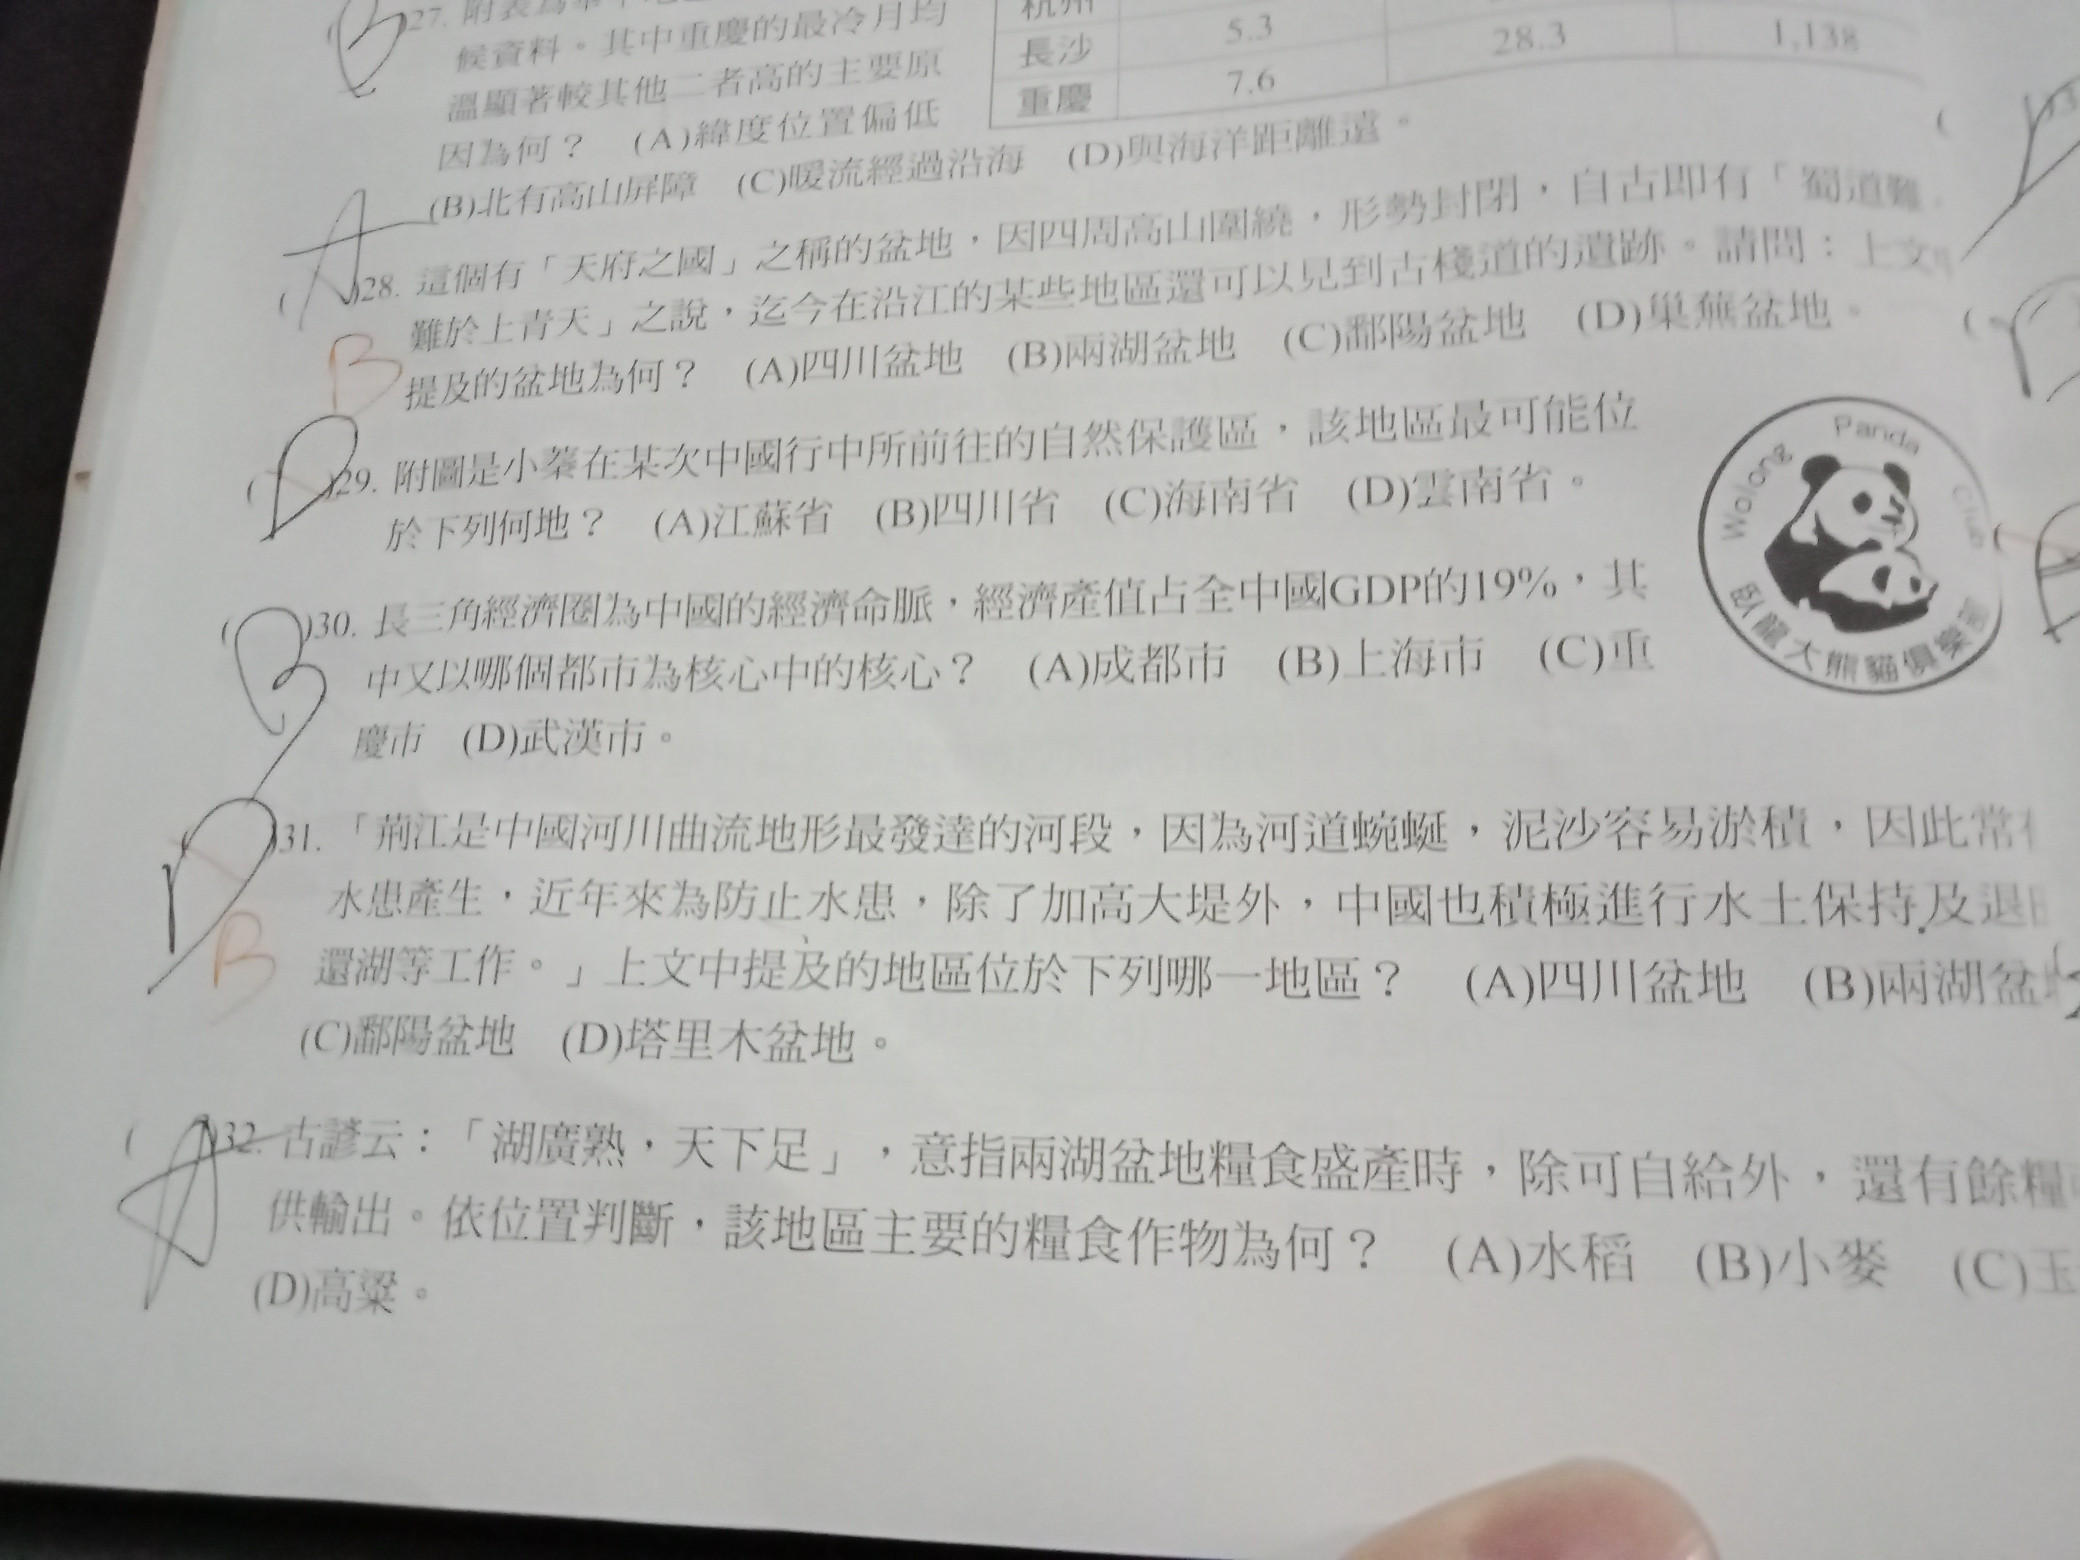 B
27. 附表為華中地區
候資料。其中重慶的最冷月均
溫顯著較其他二者高的主要原
因為何？ (A)緯度位置偏低
(B)北有高山屏障 (C)暖流經過沿海 (D)與海洋距離遠。
杭州
長沙 5.3 28.3 1,138
重慶 7.6
A
( )28. 這個有「天府之國」之稱的盆地，因四周高山圍繞，形勢封閉，自古即有「蜀道難
難於上青天」之說，迄今在沿江的某些地區還可以見到古棧道的遺跡。請問：上文
提及的盆地為何？ (A)四川盆地 (B)兩湖盆地 (C)鄱陽盆地 (D)巢蕪盆地。
B
D
( )29. 附圖是小蓁在某次中國行中所前往的自然保護區，該地區最可能位
於下列何地？ (A)江蘇省 (B)四川省 (C)海南省 (D)雲南省。
Wolong Panda Club
臥龍大熊貓俱樂部
B
( )30. 長三角經濟圈為中國的經濟命脈，經濟產值占全中國GDP的19%，其
中又以哪個都市為核心中的核心？ (A)成都市 (B)上海市 (C)重
慶市 (D)武漢市。
D
( )31. 「荊江是中國河川曲流地形最發達的河段，因為河道蜿蜒，泥沙容易淤積，因此常
水患產生，近年來為防止水患，除了加高大堤外，中國也積極進行水土保持及退
B
還湖等工作。」上文中提及的地區位於下列哪一地區？ (A)四川盆地 (B)兩湖盆
(C)鄱陽盆地 (D)塔里木盆地。
A
( )32. 古諺云：「湖廣熟，天下足」，意指兩湖盆地糧食盛產時，除可自給外，還有餘糧
供輸出。依位置判斷，該地區主要的糧食作物為何？ (A)水稻 (B)小麥 (C)玉
(D)高粱。